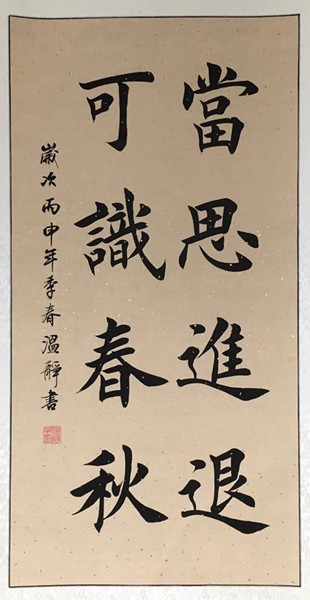 當思進退
可識春秋
歲次丙申年季春溫靜書